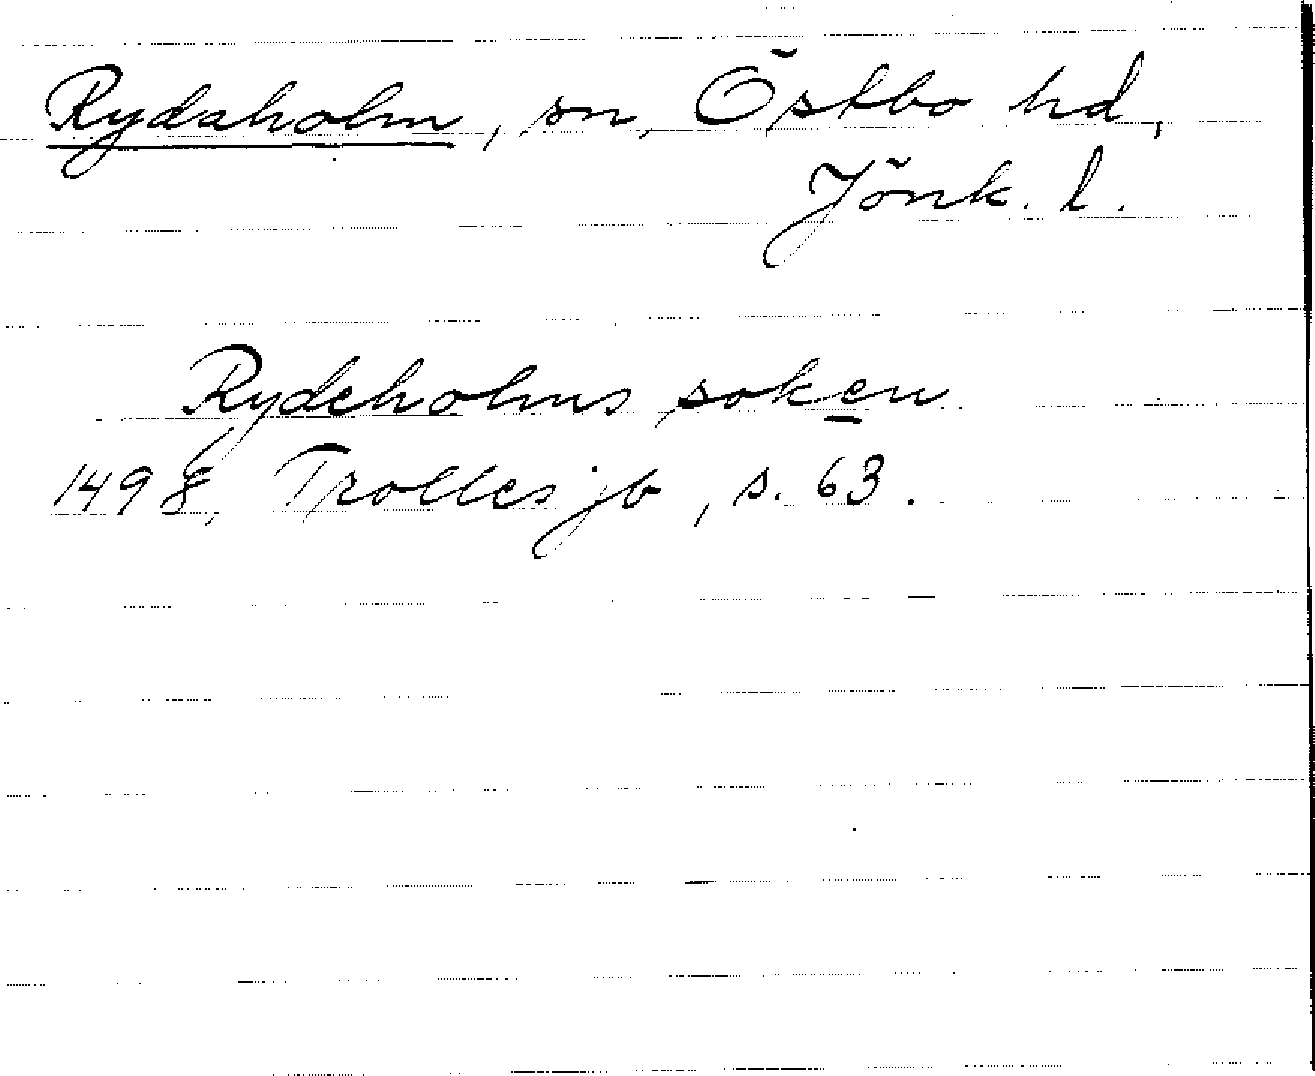 Rydaholm, sn, Östbo hd,
Jönk. l.
Rydeholms soken
1498, Trolles jb, s. 63.